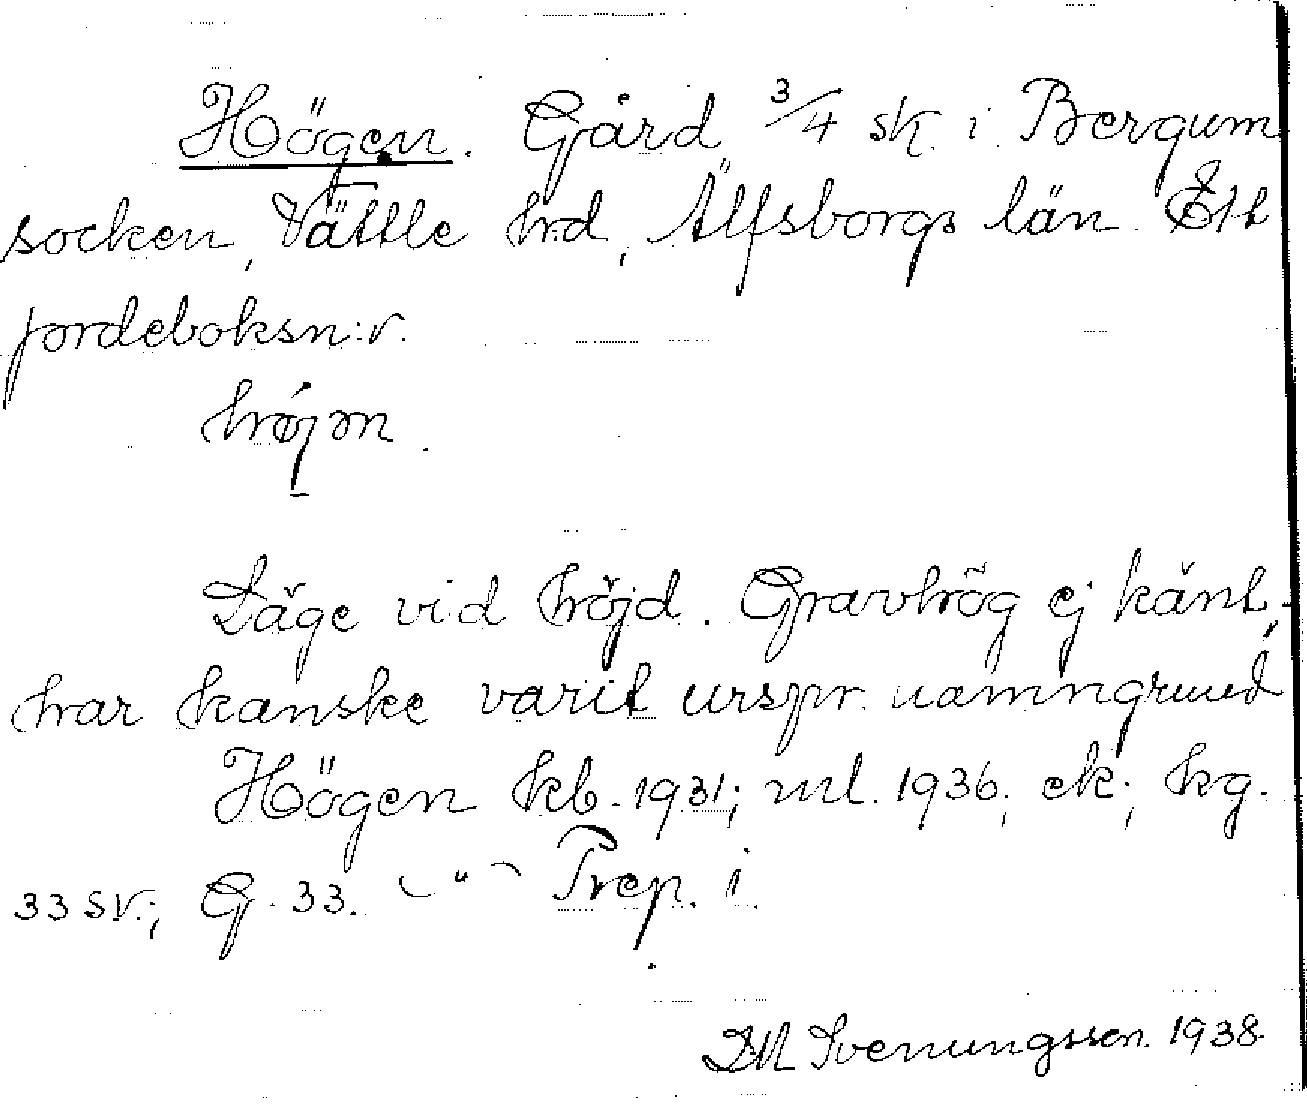 Högen. Gård 3/4 sk. i Bergum
socken, Vättle hrd, Älfsborgs län. Ett
jordeboksn:r.
hǿjɔn.
Läge vid höjd. Gravhög ej känt,
har kanske varit urspr. namngrund
Högen kb. 1931; ml. 1936; ek; kg.
33 sv.; G. 33. ﹏ " ﹏ Prep. i.
Svenungsson. 1938.